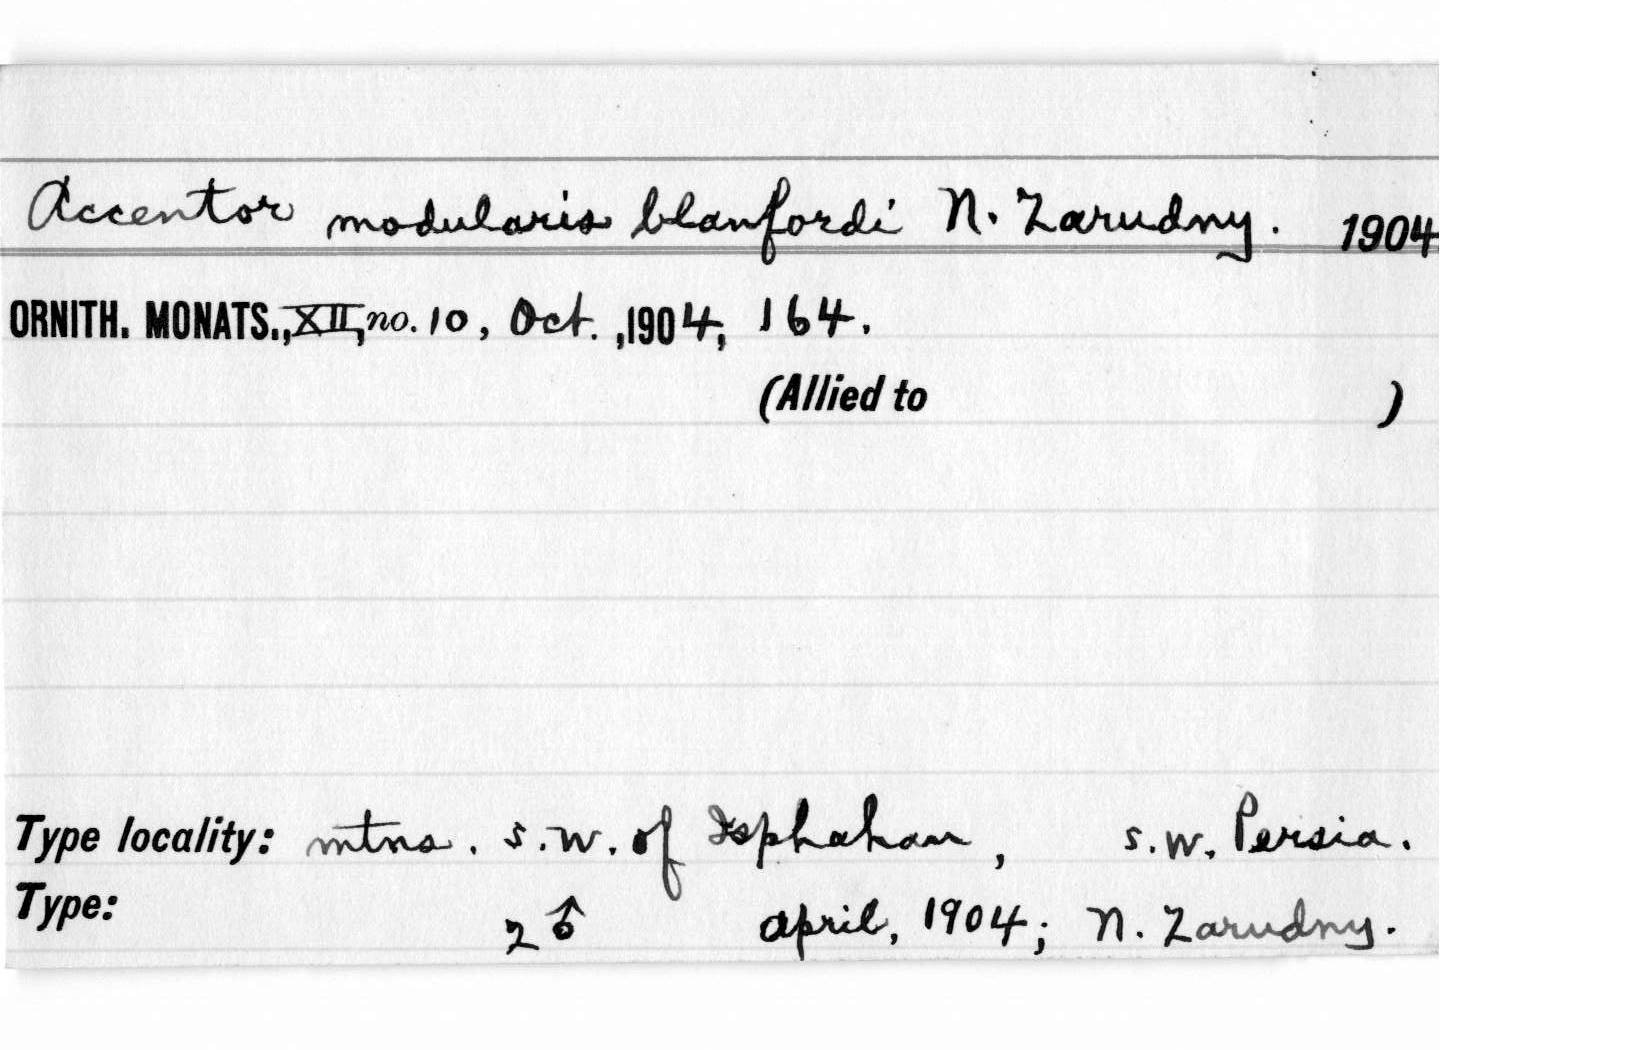 Accentor modularis blanfordi N. Zarudny. 1904
ORNITH. MONATS., XII, no. 10, Oct. ,1904, 164.
(Allied to )
Type locality: mtns. s.w. of Isphahan, s.w. Persia.
Type: 2 ♂ april, 1904; N. Zarudny.